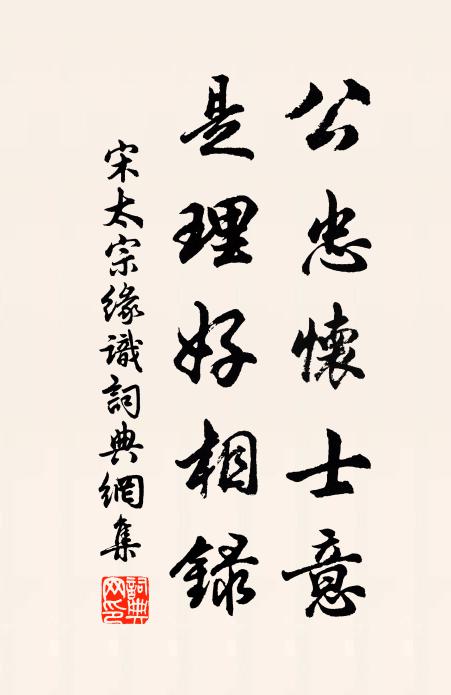 公忠懷士意
是理好相錄
宋太宗緣識詞典網集
詞典網印